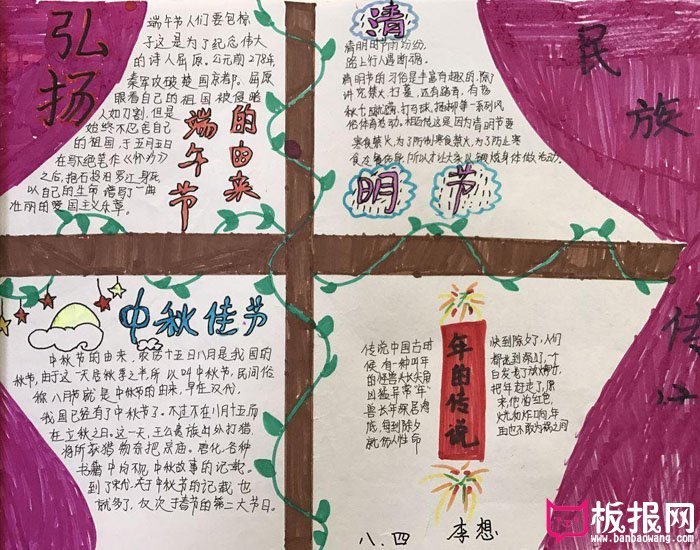 弘扬
民族传
端午节
的由来
端午节人们要包粽
子这是为了纪念伟大
的诗人屈原。公元前278年
秦军攻破楚国京都。屈原
眼看自己的祖国被侵略
人如刀割,但是
始终不忍舍自己
的祖国,于五月五日
在写下绝笔作《怀沙》
之后,抱石投汨罗江身死
以自己的生命谱写了一曲
壮丽的爱国主义乐章。
清
明
节
清明时节雨纷纷,
路上行人遇断魂。
清明节的习俗是丰富有趣的,除了
讲究禁火、扫墓,还有踏青、
秋千 打马球、插柳等一系列风
俗体育活动。相传这是因为清明节要
寒食禁火,为了防止
所以大家 锻炼身体
中秋佳节
中秋节的由来,农历十五日八月是我国的
秋节,由于这一天居秋季之半,所以叫中秋节,民间俗
做八月节就是中秋节的由来,早在汉代,
我国已经有了中秋节了。不过不在八月十五而
在立秋之日。这一天,王公贵族出外打猎
将所获猎物奋把宗庙。唐化,各种
书籍中均就中秋故事的记载。
到了宋代,关于中秋节的记载也
就多了,仅次于春节的第二大节日。
年的传说
传说中国古时
候,有一种叫年
的怪兽头长尖角
凶猛异常,年
兽长年深居海
底,每到除夕
就伤人性命
快到除夕了,人们
都逃到深山了,一个
白发老了放爆竹,
把年赶走了,原
来,他怕红色,
火光如炸响,年
再也不敢为祸了
八.四 李想
板报网
www.banbaowang.com